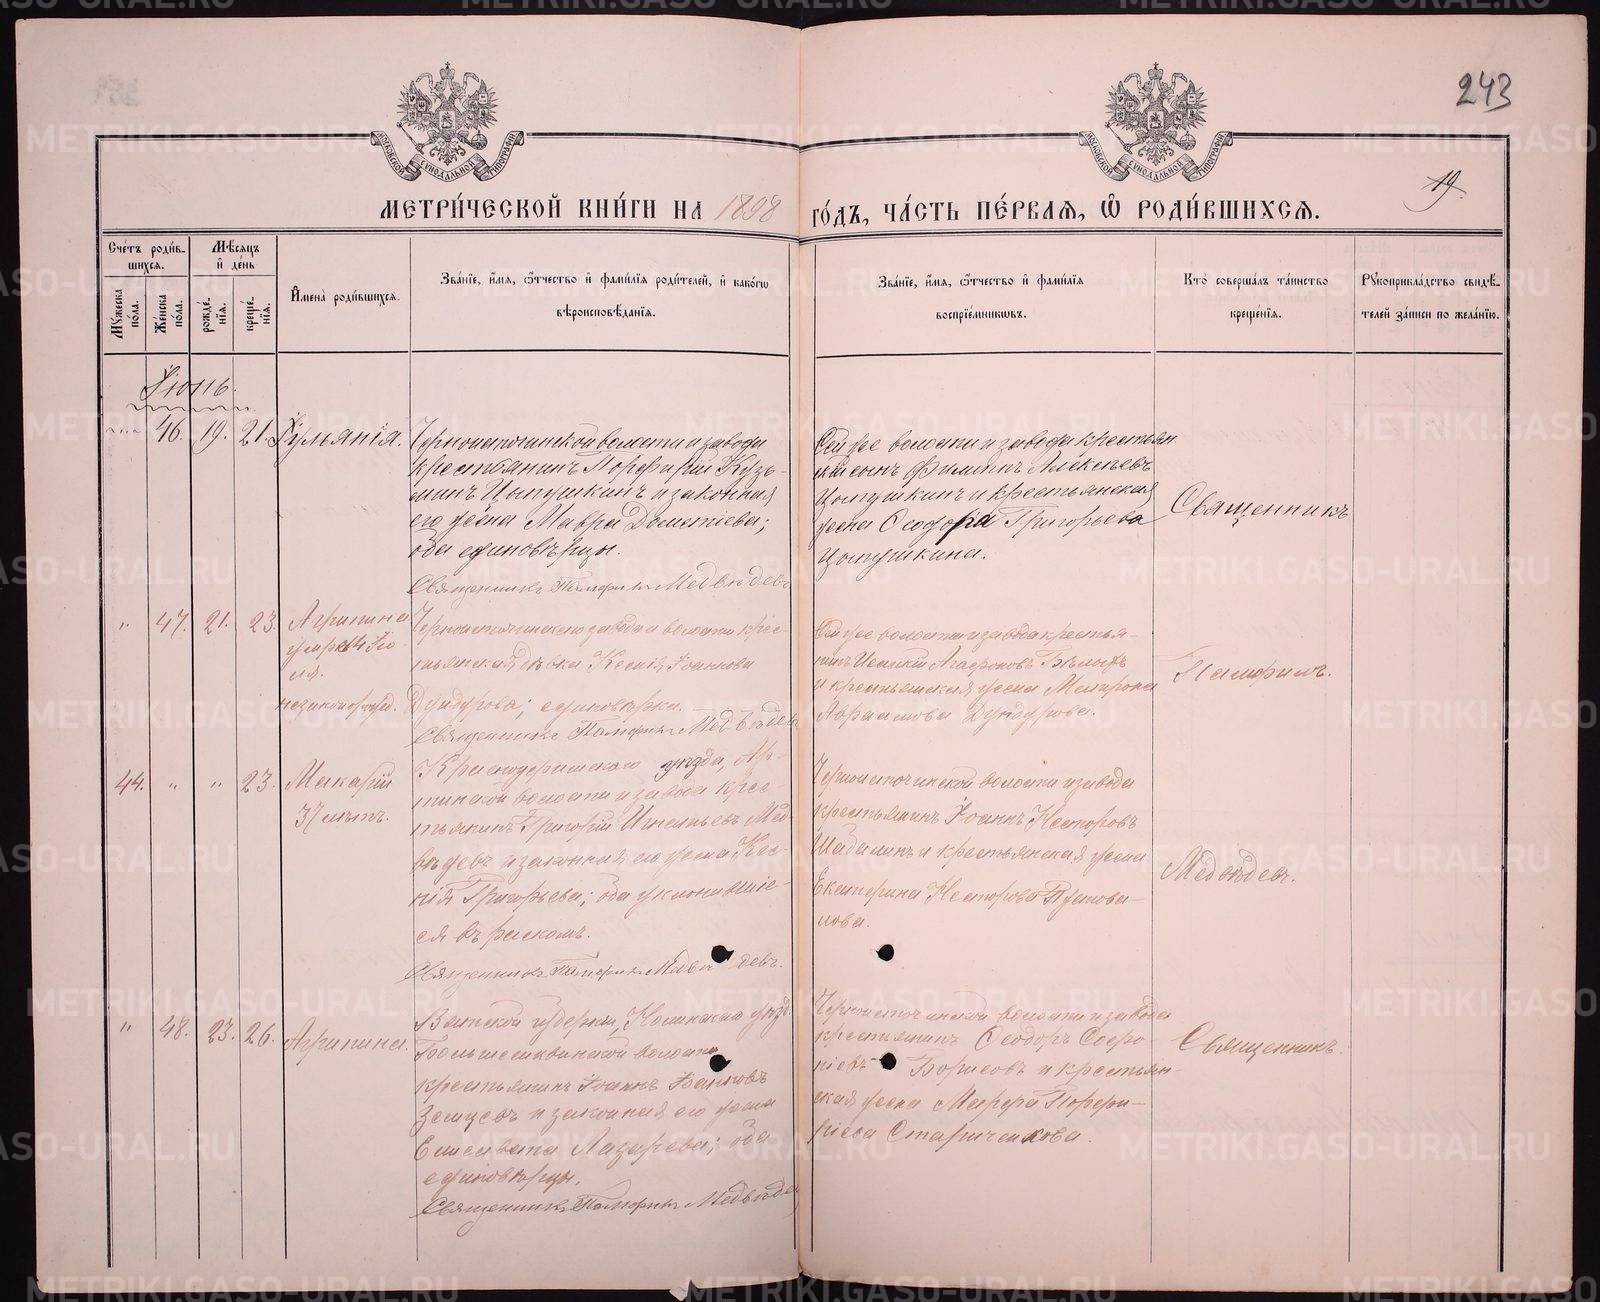 243
19.
МЕТРИ́ЧЕСКОЙ КНИ́ГИ НА 1898 ГО́ДЪ, ЧА́СТЬ ПЕ́РВАЯ, Ѡ РОДИ́ВШИХСЯ.
Сче́тъ роди́в-
шихся.
Мѣ́сяцъ
и҆ де́нь
Мꙋ́жеска по́ла.
Же́нска по́ла.
рожде́-
нїя.
креще́-
нїя.
И҆мена̀ роди́вшихся.
Зва́нїе, и҆́мя, ѻ҆́тчество и҆ фами́лїя роди́телей, и҆ како́гѡ
вѣроисповѣ́данїя.
Зва́нїе, и҆́мя, ѻ҆́тчество и҆ фами́лїя
воспрїе́мникѡвъ.
Кто̀ соверша́лъ та́инство
креще́нїя.
Рꙋкоприкла́дство свидѣ́-
телей за́писи по жела́нїю.
Іюнь.
46. 19. 21. Іуліанія.
Черноисточинской волости и завода
крестьянинъ Порфирій Кузь-
минъ Цыпушкинъ и законная
его жена Мавра Дометіева;
оба единовѣрцы.
Священникъ Памфилъ Медвѣдевъ
Сей же волости и завода крестьян
скій сынъ Филиппъ Алексѣевъ
Цыпушкинъ и крестьянская
жена Ѳеодора Григорьева
Цыпушкина.
Священникъ
" 47. 21. 23. Агрипина
умер. 4 Ію
ля.
незаконорожд.
Черноисточинскаго завода и волости крес-
тьянская дѣвка Ксенія Іоаннова
Дундурова; единовѣрка.
Священникъ Памфилъ Медвѣдевъ
Сей же волости и завода крестья-
нинъ
и крестьянская жена Матрона
Авраамова Дундурова.
Памфилъ.
44. " " 23. Макарій
37 лѣтъ.
Красноуфимскаго уѣзда, Ар-
тинской волости и завода крес-
тьянинъ Григорій Игнатьевъ Мед-
вѣдевъ и законная его жена Ксе-
нія Григорьева; оба уклонившіе-
ся въ расколъ.
Священникъ Памфилъ Медвѣдевъ.
Черноисточинской волости и завода
крестьянинъ Іоаннъ Несторовъ
Шабалинъ и крестьянская жена
Екатерина Несторова Пушкова-
лова.
Медвѣдевъ.
" 48. 23. 26. Агрипина.
Вятской губерніи, уѣзда
волости
крестьянинъ Іоаннъ
Земцевъ и законная его жена
Елисавета Лазарева; оба
единовѣрцы.
Священникъ Памфилъ Медвѣдевъ
Черноисточинской волости и завода
крестьянинъ Ѳеодоръ Софро-
ніевъ Борисовъ и крестьян-
ская жена Марфа Порфи-
ріева Стариченкова.
Священникъ.